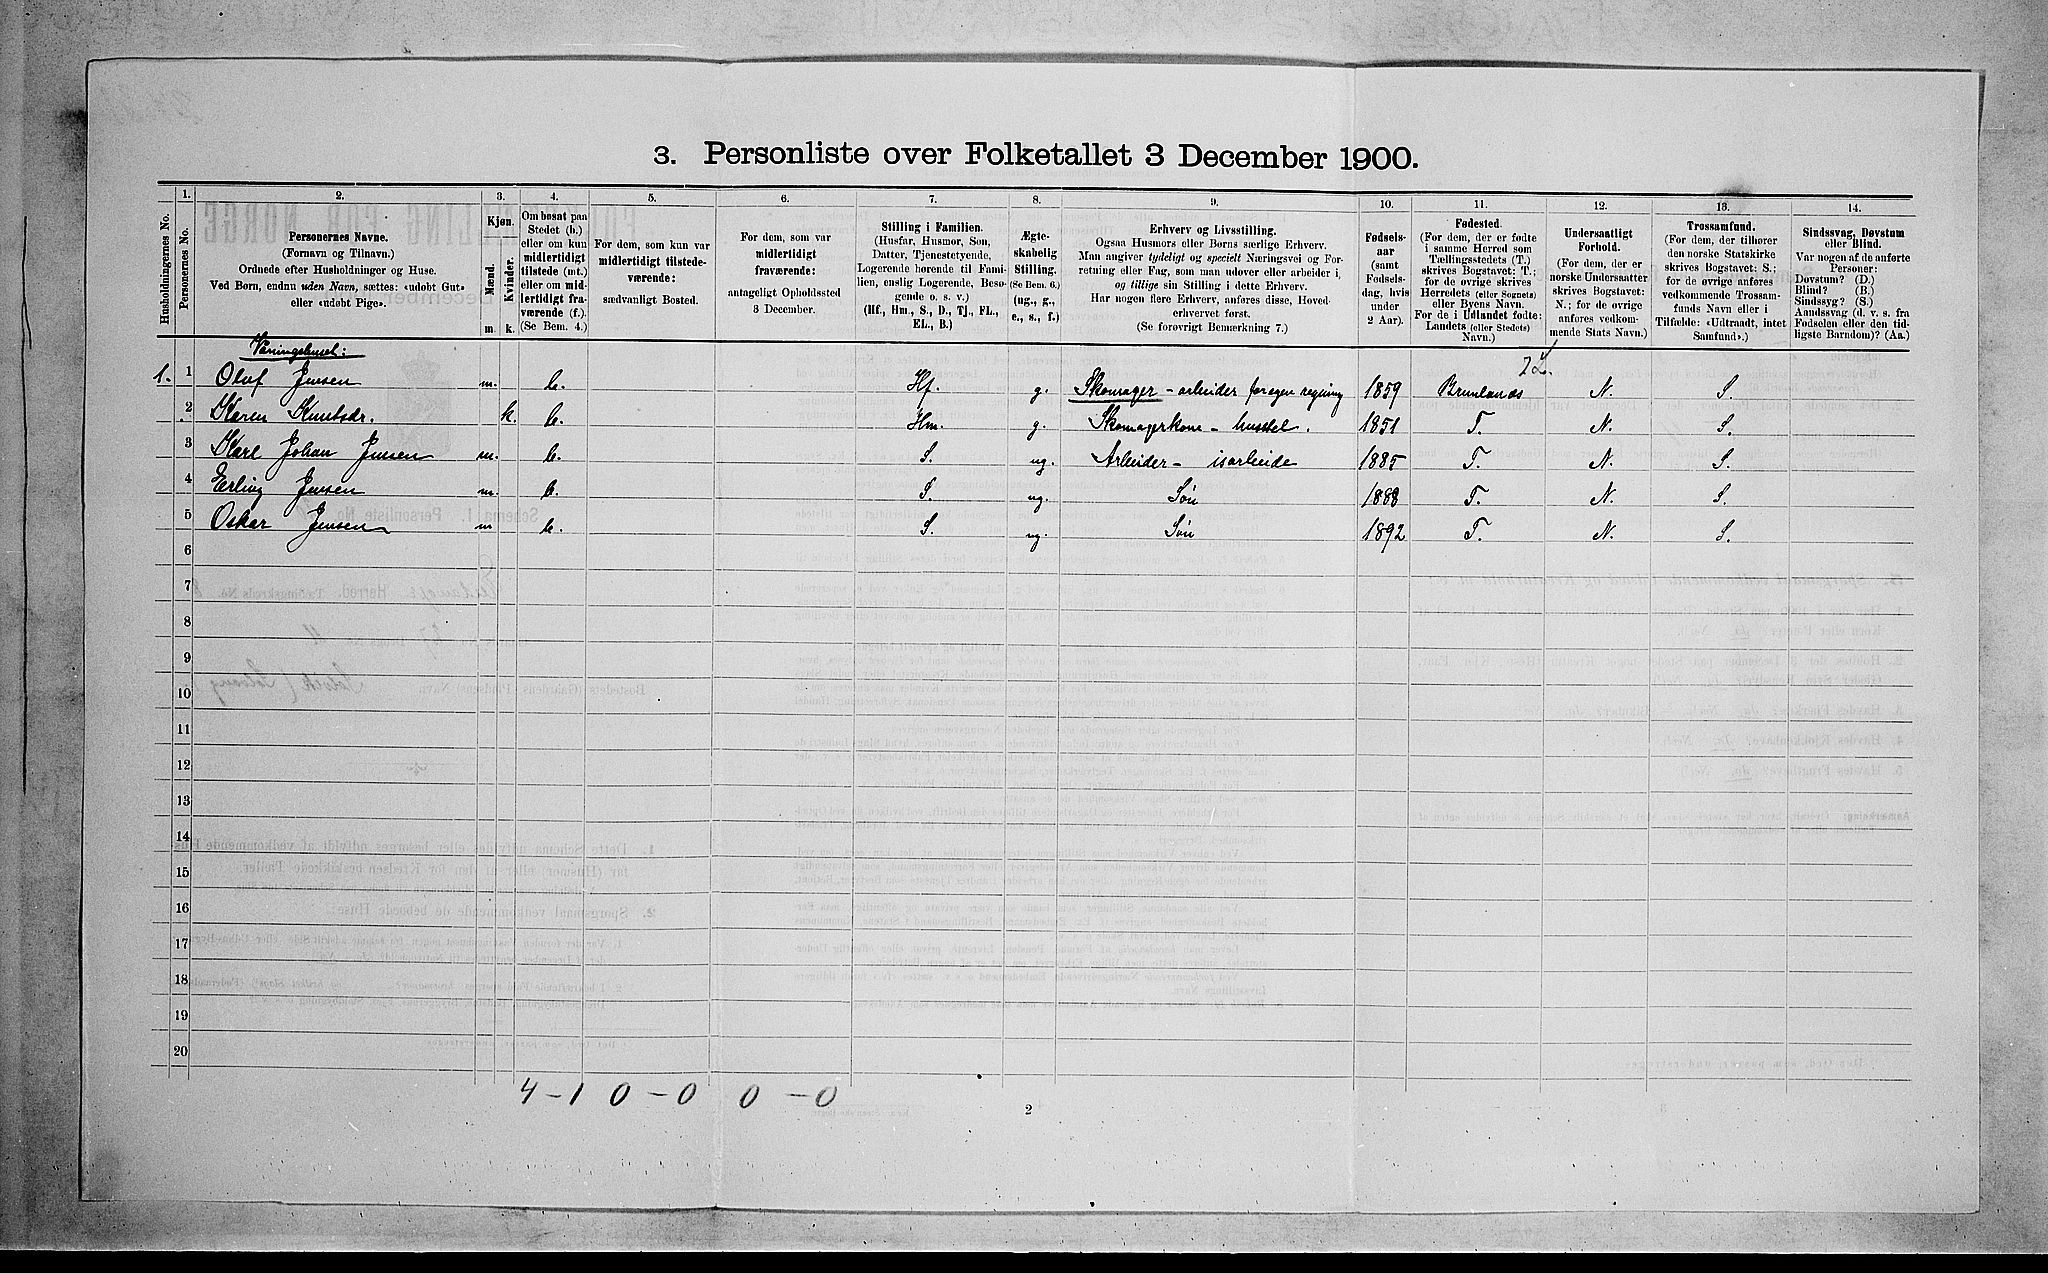 3. Personliste over Folketallet 3 December 1900.
Husholdningernes No.
1.
Personernes No.
2.
Personernes Navne.
(Fornavn og Tilnavn.)
Ordnede efter Husholdninger og Huse.
Ved Børn, endnu uden Navn, sættes: «udøbt Gut»
eller «udøbt Pige».
3.
Kjøn.
Mænd.
Kvinder.
m.
k.
4.
Om bosat paa
Stedet (b.)
eller om kun
midlertidigt
tilstede (mt.)
eller om mid-
lertidigt fra-
værende (f.).
(Se Bem. 4.)
5.
For dem, som kun var
midlertidigt tilstede-
værende:
sædvanligt Bosted.
6.
For dem, som var
midlertidigt
fraværende:
antageligt Opholdssted
3 December.
7.
Stilling i Familien.
(Husfar, Husmor, Søn,
Datter, Tjenestetyende,
Logerende hørende til Fami-
lien, enslig Logerende, Besø-
gende o. s. v.)
(Hf., Hm., S., D., Tj., FL.,
EL., B.)
8.
Ægte-
skabelig
Stilling.
(Se Bem. 6.)
(ug., g.,
e., s., f.)
9.
Erhverv og Livsstilling.
Ogsaa Husmors eller Børns særlige Erhverv.
Man angiver tydeligt og specielt Næringsvei og For-
retning eller Fag, som man udøver eller arbeider i,
og tillige sin Stilling i dette Erhverv.
Har nogen flere Erhverv, anføres disse, Hoved-
erhvervet først.
(Se forøvrigt Bemærkning 7.)
10.
Fødsels-
aar
(samt
Fødsels-
dag, hvis
under
2 Aar).
11.
Fødested.
(For dem, der er fødte
i samme Herred som
Tællingsstedets (T.)
skrives Bogstavet: T.;
for de øvrige skrives
Herredets (eller Sognets)
eller Byens Navn.
For de i Udlandet fødte:
Landets (eller Stedets)
Navn.)
12.
Undersaatligt
Forhold.
(For dem, der er
norske Undersaatter
skrives Bogstavet:
N.; for de øvrige
anføres vedkom-
mende Stats Navn.)
13.
Trossamfund.
(For dem, der tilhører
den norske Statskirke
skrives Bogstavet: S.;
for de øvrige anføres
vedkommende Trossam-
funds Navn eller i
Tilfælde: «Udtraadt, intet
Samfund».)
14.
Sindssvag, Døvstum
eller Blind.
Var nogen af de anførte
Personer:
Døvstum? (D.)
Blind? (B.)
Sindssyg? (S.)
Aandssvag (d. v. s. fra
Fødselen eller den tid-
ligste Barndom)? (Aa.)
Vaaningshuset:
1. 1 Oluf Jensen m. b. Hf. g. Skomager - arbeider for egen regning 1859 Brunlanæs N. S.
2 Karen Knutsdr. k. b. Hm. g. Skomagerkone - husstel. 1851 T. N. S.
3 Karl Johan Jensen m. b. S. ug. Arbeider - isarbeide 1885 T. N. S.
4 Erling Jensen m. b. S. ug. Søn 1888 T. N. S.
5 Oskar Jensen m b. S. ug. Søn 1892 T. N. S.
6
7
8
9
10
11
12
13
14
15
16
17
18
19
20
4 - 1 0 - 0 0 - 0
2